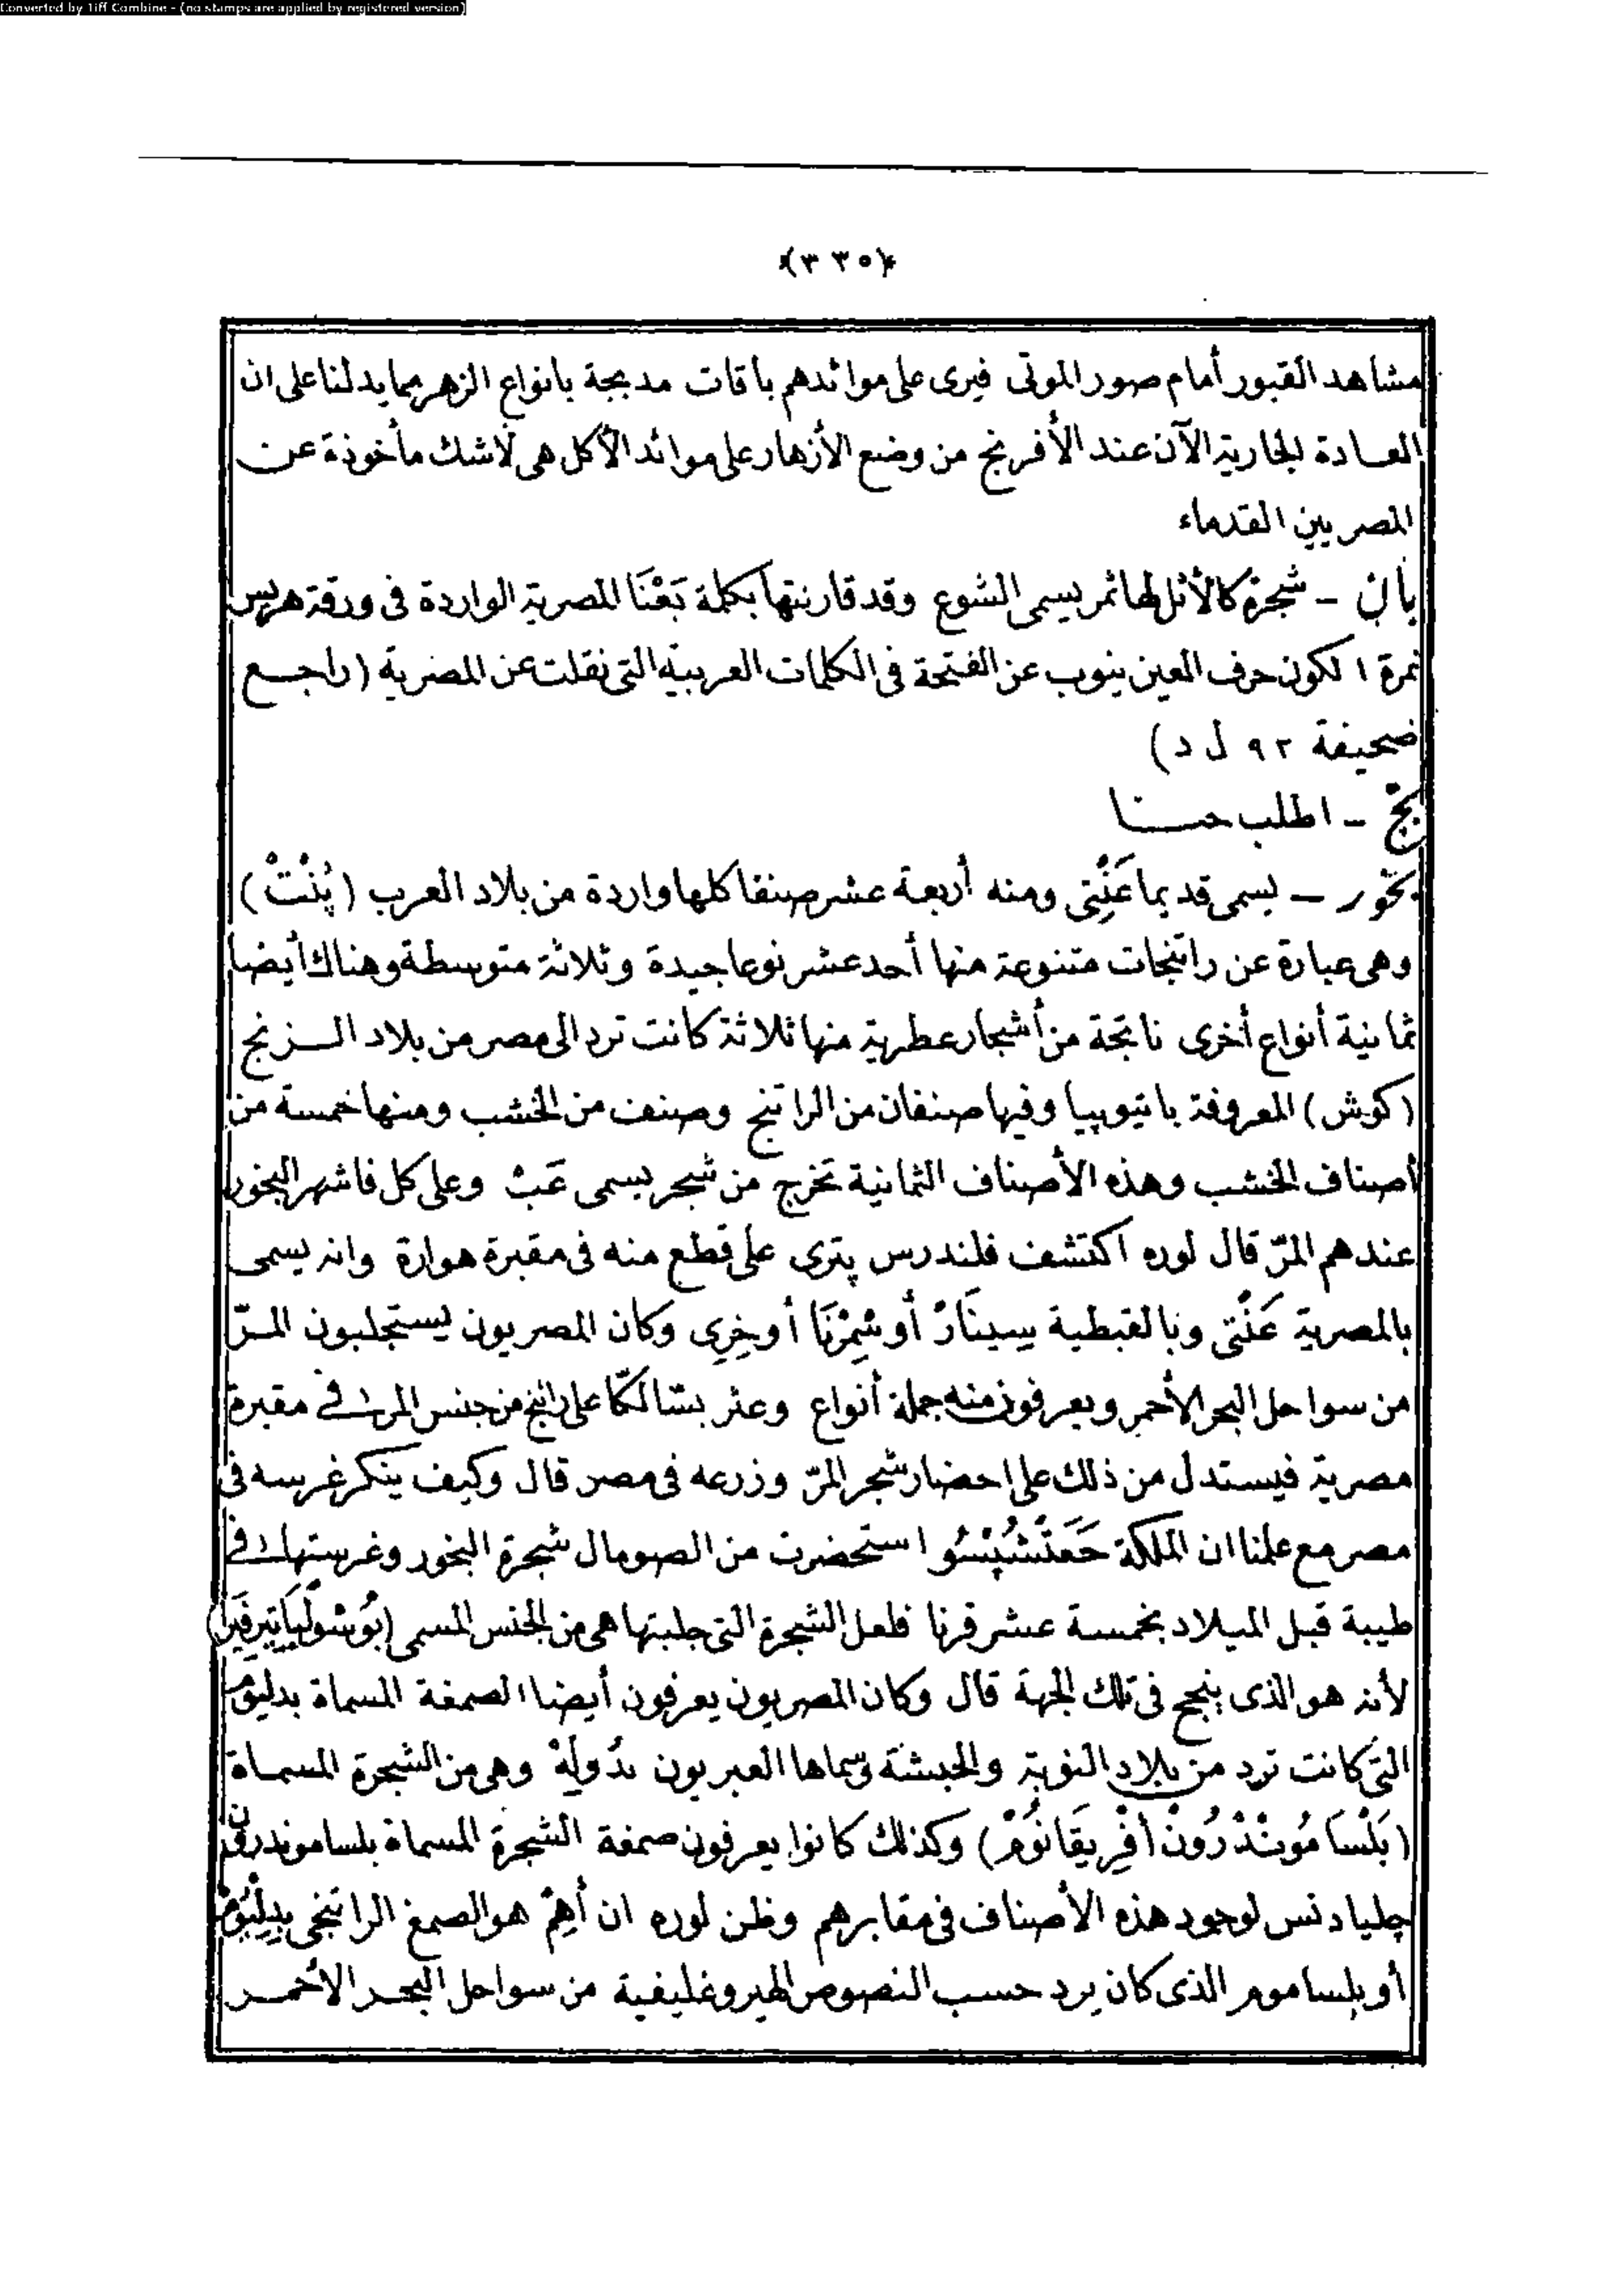 Converted by Tiff Combine - (no stamps are applied by registered version)
﴿٣٣٥﴾
مشاهد القبور أمام صور الموتى فيرى على موائدهم باقات مدبجة بانواع الزهر مما يدلنا على ان
العادة الجارية الآن عند الأفرنج من وضع الأزهار على موائد الأكل هى لاشك مأخوذة عن
المصريين القدماء
بان - شجرة كالأثل لها ثمر يسمى الشوع وقد قارنتها بكلمة بَعْنَا المصرية الواردة فى ورقة هريس
نمرة ١ لكون حرف العين ينوب عن الفتحة فى الكلمات العربية التى نقلت عن المصرية (راجع
صحيفة ٩٢ ل د)
بخ - اطلب حسنا
بخور - يسمى قديما عَنْتِى ومنه أربعة عشر صنفا كلها واردة من بلاد العرب (پُنْتْ)
وهى عبارة عن راتنجات متنوعة منها أحد عشر نوعا جيدة وثلاثة متوسطة وهناك أيضا
ثمانية أنواع أخرى ناتجة من أشجار عطرية منها ثلاثة كانت ترد الى مصر من بلاد الزنج
(كوش) المعروفة باتيوپيا وفيها صنفان من الراتنج وصنف من الخشب ومنها خمسة من
أصناف الخشب وهذه الأصناف الثمانية تخرج من شجر يسمى عَبْ وعلى كل فاشهر البخور
عندهم المرّ قال لوره اكتشف فلندرس پترى على قطع منه فى مقبرة هوارة وانه يسمى
بالمصرية عَنْتِى وبالقبطية سِينَارْ أو شِمْرْنَا أو خِرِى وكان المصريون يستجلبون المرّ
من سواحل البحر الأحمر ويعرفون منه جملة أنواع وعثر بشالكا على راتنج من جنس المر فى مقبرة
مصرية فيستدل من ذلك على احضار شجر المرّ وزرعه فى مصر قال وكيف ينكر غرسه فى
مصر مع علمنا ان الملكة حَعَتْشُپْسُو استحضرت من الصومال شجرة البخور وغرستها فى
طيبة قبل الميلاد بخمسة عشر قرنا فلعل الشجرة التى جلبتها هى من الجنس المسمى
لأنه هو الذى ينجح فى تلك الجهة قال وكان المصريون يعرفون أيضا الصمغة المسماة بدليوم
التى كانت ترد من بلاد النوبة والحبشة وسماها العبريون بدُولَهْ وهى من الشجرة المسماة
(بَلْسَا مُونْدْرُونْ أفْرِيقَانُومْ) وكذلك كانوا يعرفون صمغة الشجرة المسماة بلساموندرون
چلياد نس لوجود هذه الأصناف فى مقابرهم وظن لوره ان أهِمْ هو الصمغ الراتنجى بِدِلْيُومْ
أو بلساموم الذى كان يرد حسب النصوص الهيروغليفية من سواحل البحر الاحمر